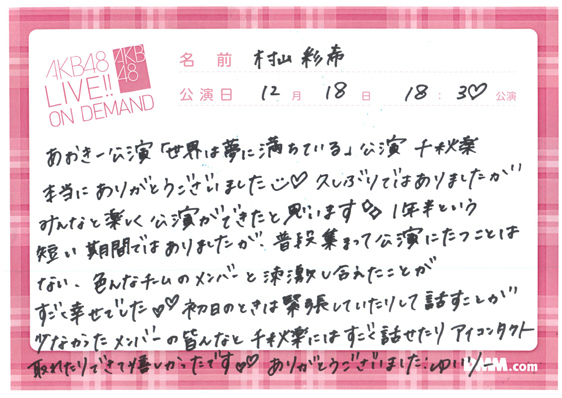 AKB48
LIVE!!
ON DEMAND
AKB
48
名 前 村山 彩希
公演日 12 月 18 日 18 : 30 公演
あおきー公演「世界は夢に満ちている」公演 千秋楽
本当にありがとうございました 久しぶりではありましたが
みんなと楽しく公演ができたと思います 1年半という
短い期間ではありましたが、普段集まって公演にたつことは
ない、色んなチームのメンバーと 刺激し合えたことが
すごく幸せでした♡♡ 初日のときは緊張していたりして話すことが
少なかったメンバーの皆んなと千秋楽にはすごく話せたり アイコンタクト
取れたりできて嬉しかったです♡♡ ありがとうございました ゆいり
DMM.com